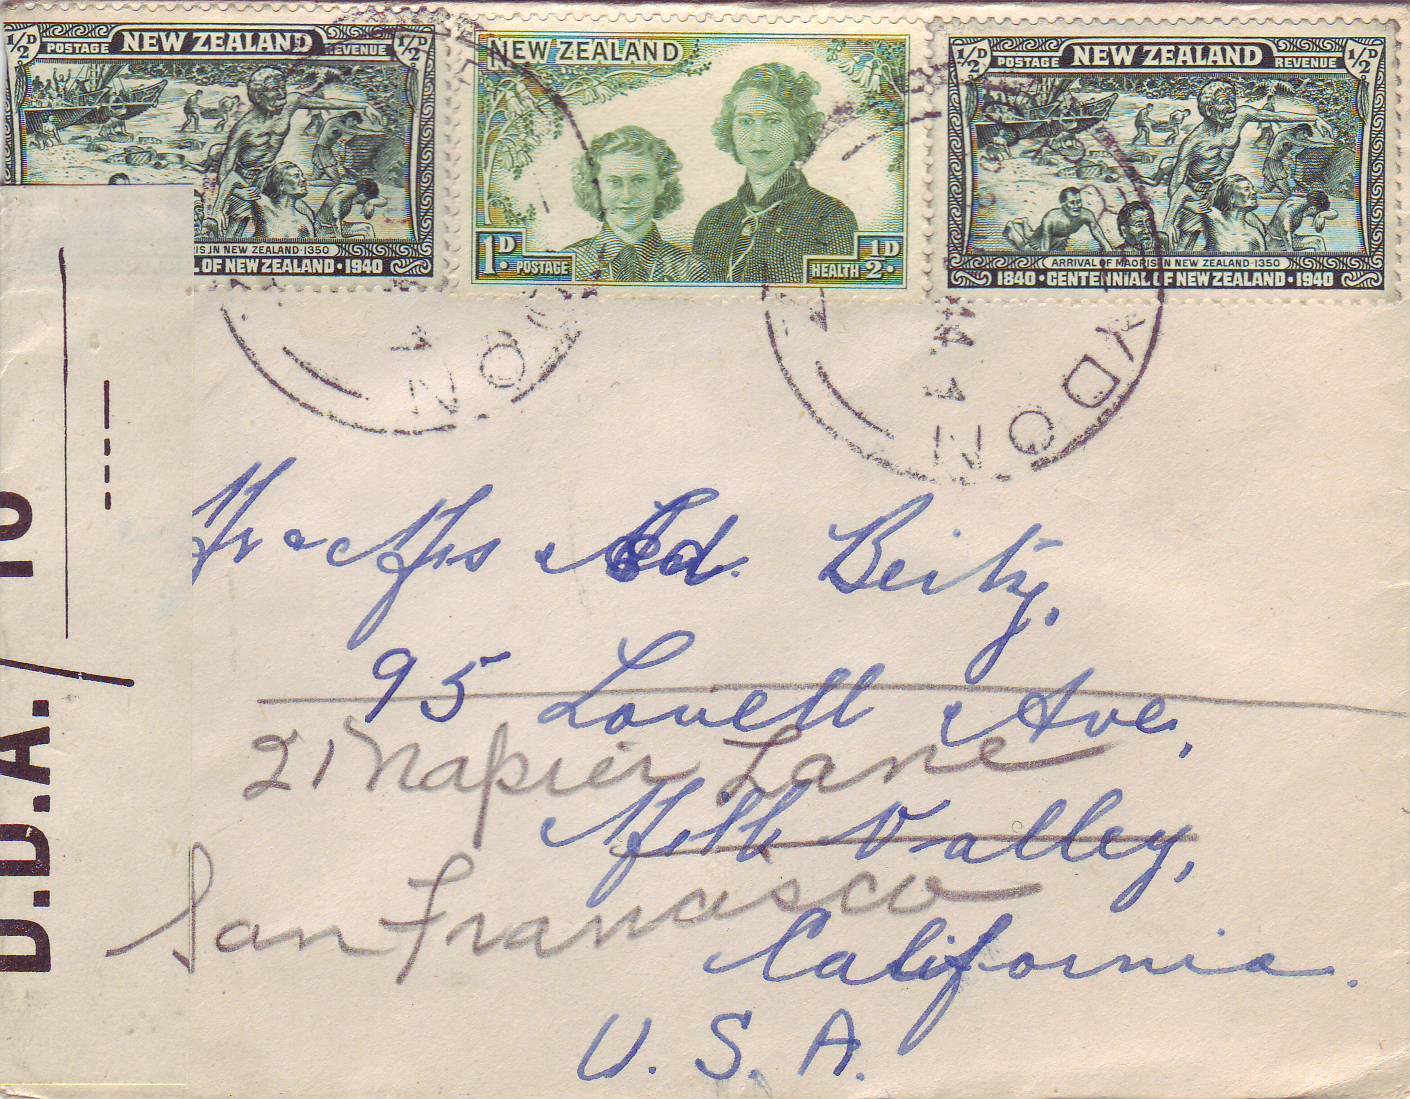 1/2D POSTAGE NEW ZEALAND REVENUE 1/2D
IS IN NEW ZEALAND·1350
L OF NEW ZEALAND·1940
NEW ZEALAND
1D· POSTAGE HEALTH 1/2D·
1/2D POSTAGE NEW ZEALAND REVENUE 1/2D
ARRIVAL OF MAORIS IN NEW ZEALAND·1350
1840·CENTENNIAL OF NEW ZEALAND·1940
D.D.A./
Mr & Mrs Ed. Beitz,
95 Lovell Ave,
21 Napier Lane
Mill Valley,
San Francisco
California.
U. S. A.